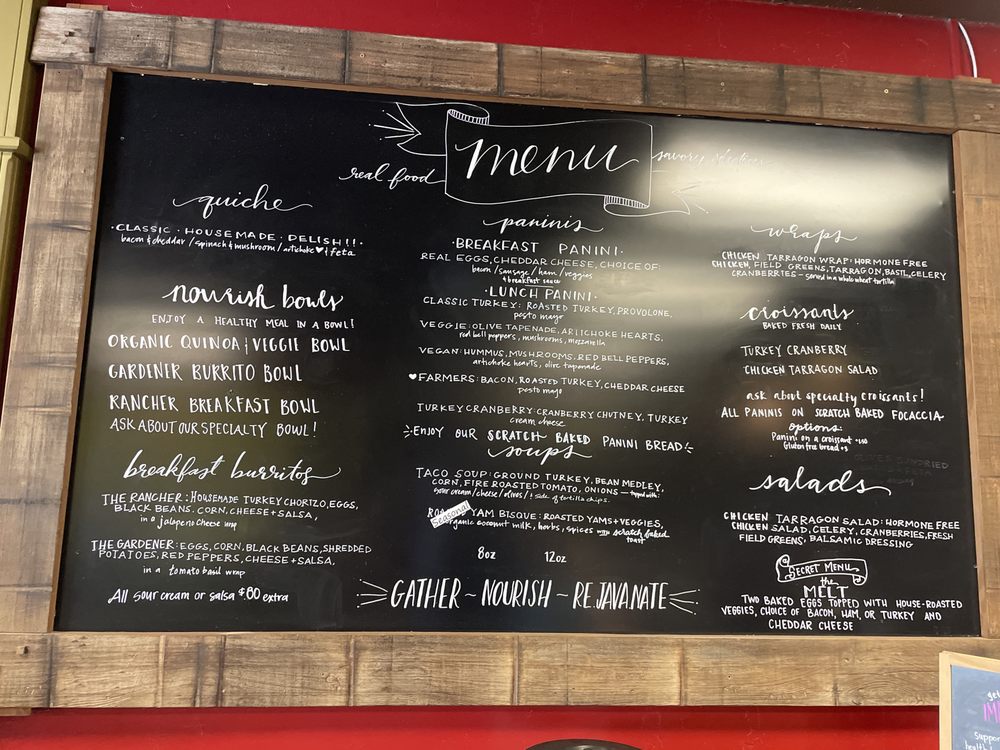 menu
real food
savory selections
quiche
· CLASSIC · HOUSEMADE · DELISH!! ·
bacon & cheddar / spinach & mushroom / artichoke ♥ & feta
nourish bowls
ENJOY A HEALTHY MEAL IN A BOWL!
ORGANIC QUINOA & VEGGIE BOWL
GARDENER BURRITO BOWL
RANCHER BREAKFAST BOWL
ASK ABOUT OUR SPECIALTY BOWL!
breakfast burritos
THE RANCHER: HOUSEMADE TURKEY CHORIZO, EGGS,
BLACK BEANS, CORN, CHEESE + SALSA,
in a jalapeno cheese wrap
THE GARDENER: EGGS, CORN, BLACK BEANS, SHREDDED
POTATOES, RED PEPPERS, CHEESE + SALSA,
in a tomato basil wrap
All sour cream or salsa $.60 extra
paninis
· BREAKFAST PANINI ·
REAL EGGS, CHEDDAR CHEESE, CHOICE OF:
bacon / sausage / ham / veggies
& breakfast sauce
· LUNCH PANINI ·
CLASSIC TURKEY: ROASTED TURKEY, PROVOLONE,
pesto mayo
VEGGIE: OLIVE TAPENADE, ARTICHOKE HEARTS,
red bell peppers, mushrooms, mozzarella
VEGAN: HUMMUS, MUSHROOMS, RED BELL PEPPERS,
artichoke hearts, olive tapanade
♥ FARMERS: BACON, ROASTED TURKEY, CHEDDAR CHEESE
pesto mayo
TURKEY CRANBERRY: CRANBERRY CHUTNEY, TURKEY
cream cheese
ENJOY OUR SCRATCH BAKED PANINI BREAD
soups
TACO SOUP: GROUND TURKEY, BEAN MEDLEY,
CORN, FIRE ROASTED TOMATO, ONIONS — topped with:
sour cream / cheese / olives / & side of tortilla chips.
Seasonal
YAM BISQUE: ROASTED YAMS + VEGGIES,
organic coconut milk, herbs, spices with scratch baked
toast
8oz 12oz
GATHER ~ NOURISH ~ REJAVANATE
wraps
CHICKEN TARRAGON WRAP: HORMONE FREE
CHICKEN, FIELD GREENS, TARRAGON, BASIL, CELERY
CRANBERRIES - served in a whole wheat tortilla
croissants
BAKED FRESH DAILY
TURKEY CRANBERRY
CHICKEN TARRAGON SALAD
ask about specialty croissants!
ALL PANINIS ON SCRATCH BAKED FOCACCIA
options:
Panini on a croissant
Gluten free bread
salads
CHICKEN TARRAGON SALAD: HORMONE FREE
CHICKEN SALAD, CELERY, CRANBERRIES, FRESH
FIELD GREENS, BALSAMIC DRESSING
SECRET MENU
the
MELT
TWO BAKED EGGS TOPPED WITH HOUSE-ROASTED
VEGGIES, CHOICE OF BACON, HAM, OR TURKEY AND
CHEDDAR CHEESE